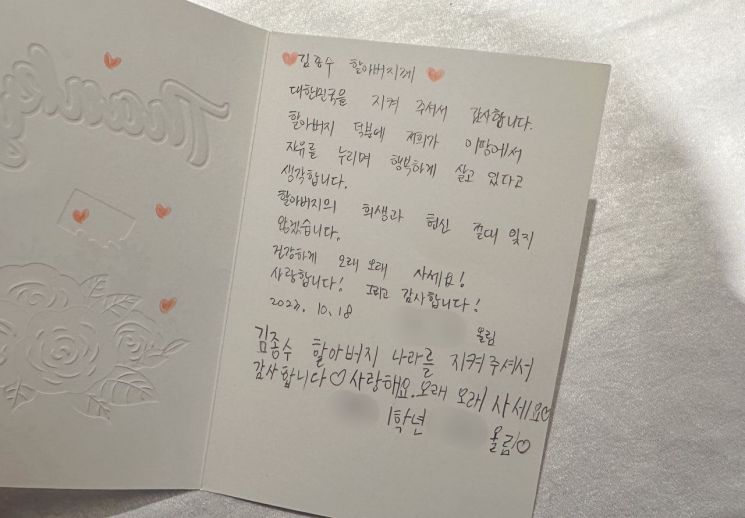 Thank
김종수 할아버지께
대한민국을 지켜 주셔서 감사합니다.
할아버지 덕분에 저희가 이땅에서
자유를 누리며 행복하게 살고 있다고
생각합니다.
할아버지의 희생과 헌신 절대 잊지
않겠습니다.
건강하게 오래 오래 사세요!
사랑합니다! 그리고 감사합니다!
10. 18
올림
김종수 할아버지 나라를 지켜주셔서
감사합니다♡ 사랑해요. 오래 오래 사세요♡
1학년 올림♡